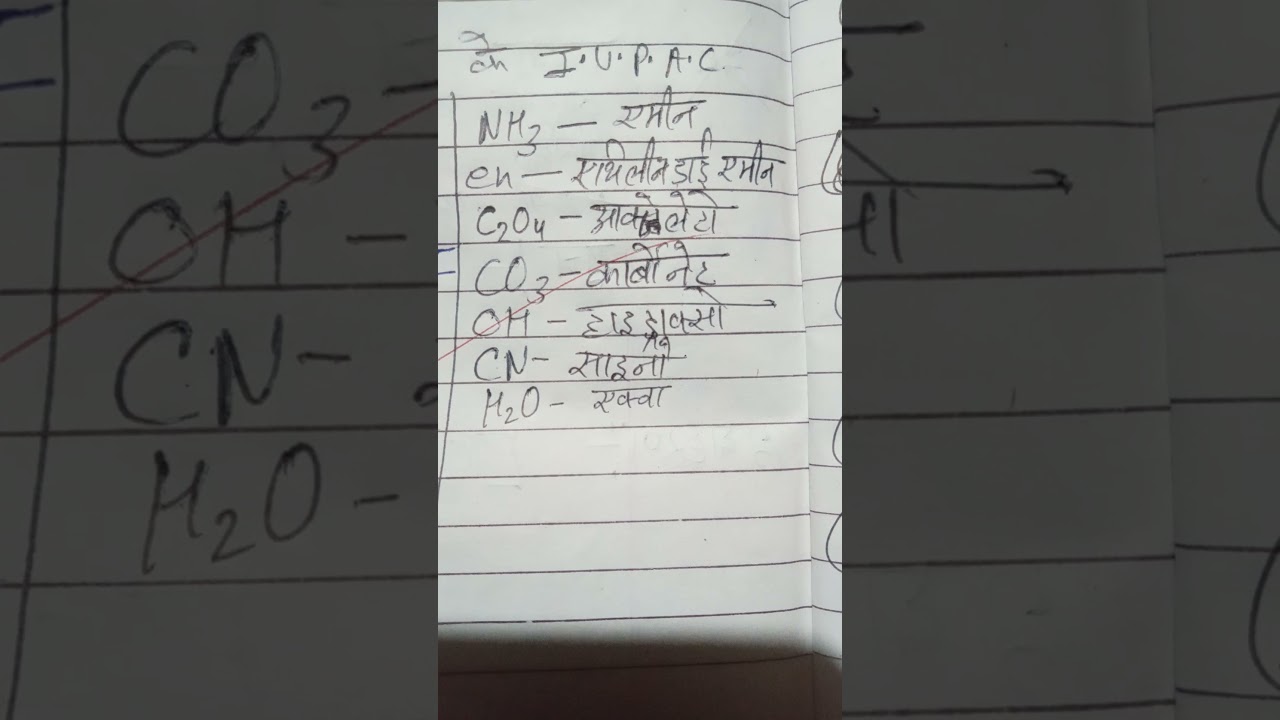 के I.U.P.A.C.
NH3 — एमीन
en — एथिलीन डाई एमीन
C2O4 — आक्जेलेटो
CO3 — कार्बोनेट
OH — हाइड्राक्सो
CN — साइनो
H2O — एक्वा